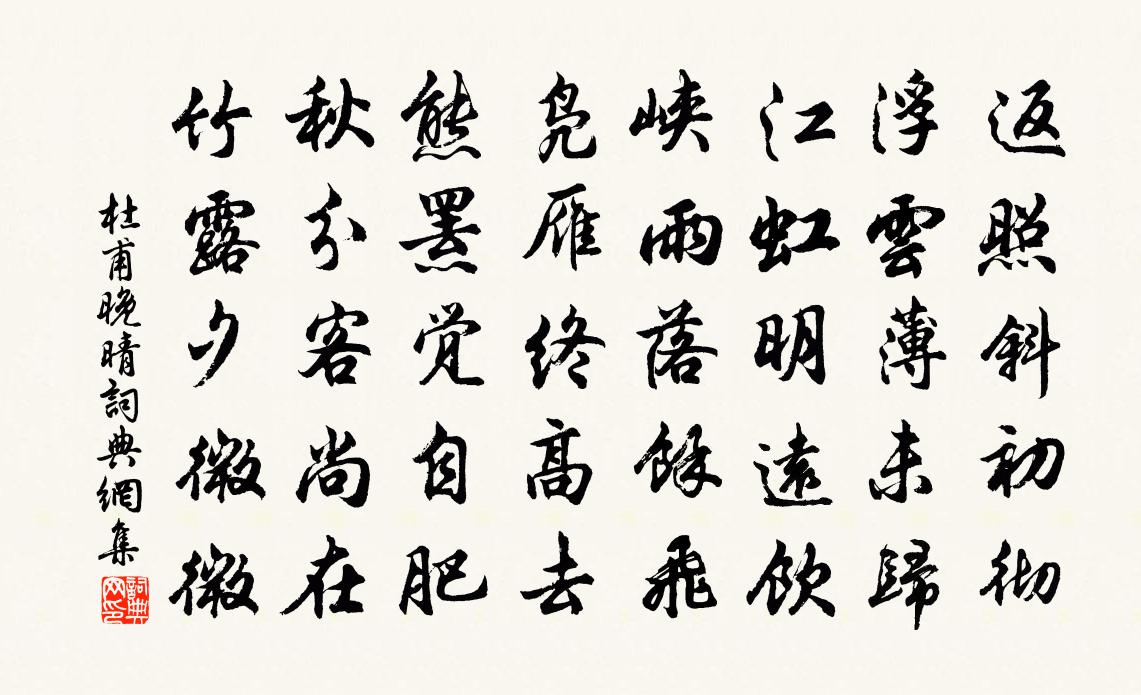 返照斜初彻
浮雲薄未歸
江虹明遠飲
峡雨落餘飛
凫雁终高去
熊罴觉自肥
秋分客尚在
竹露夕微微
杜甫晚晴詞典網集
詞典
网印